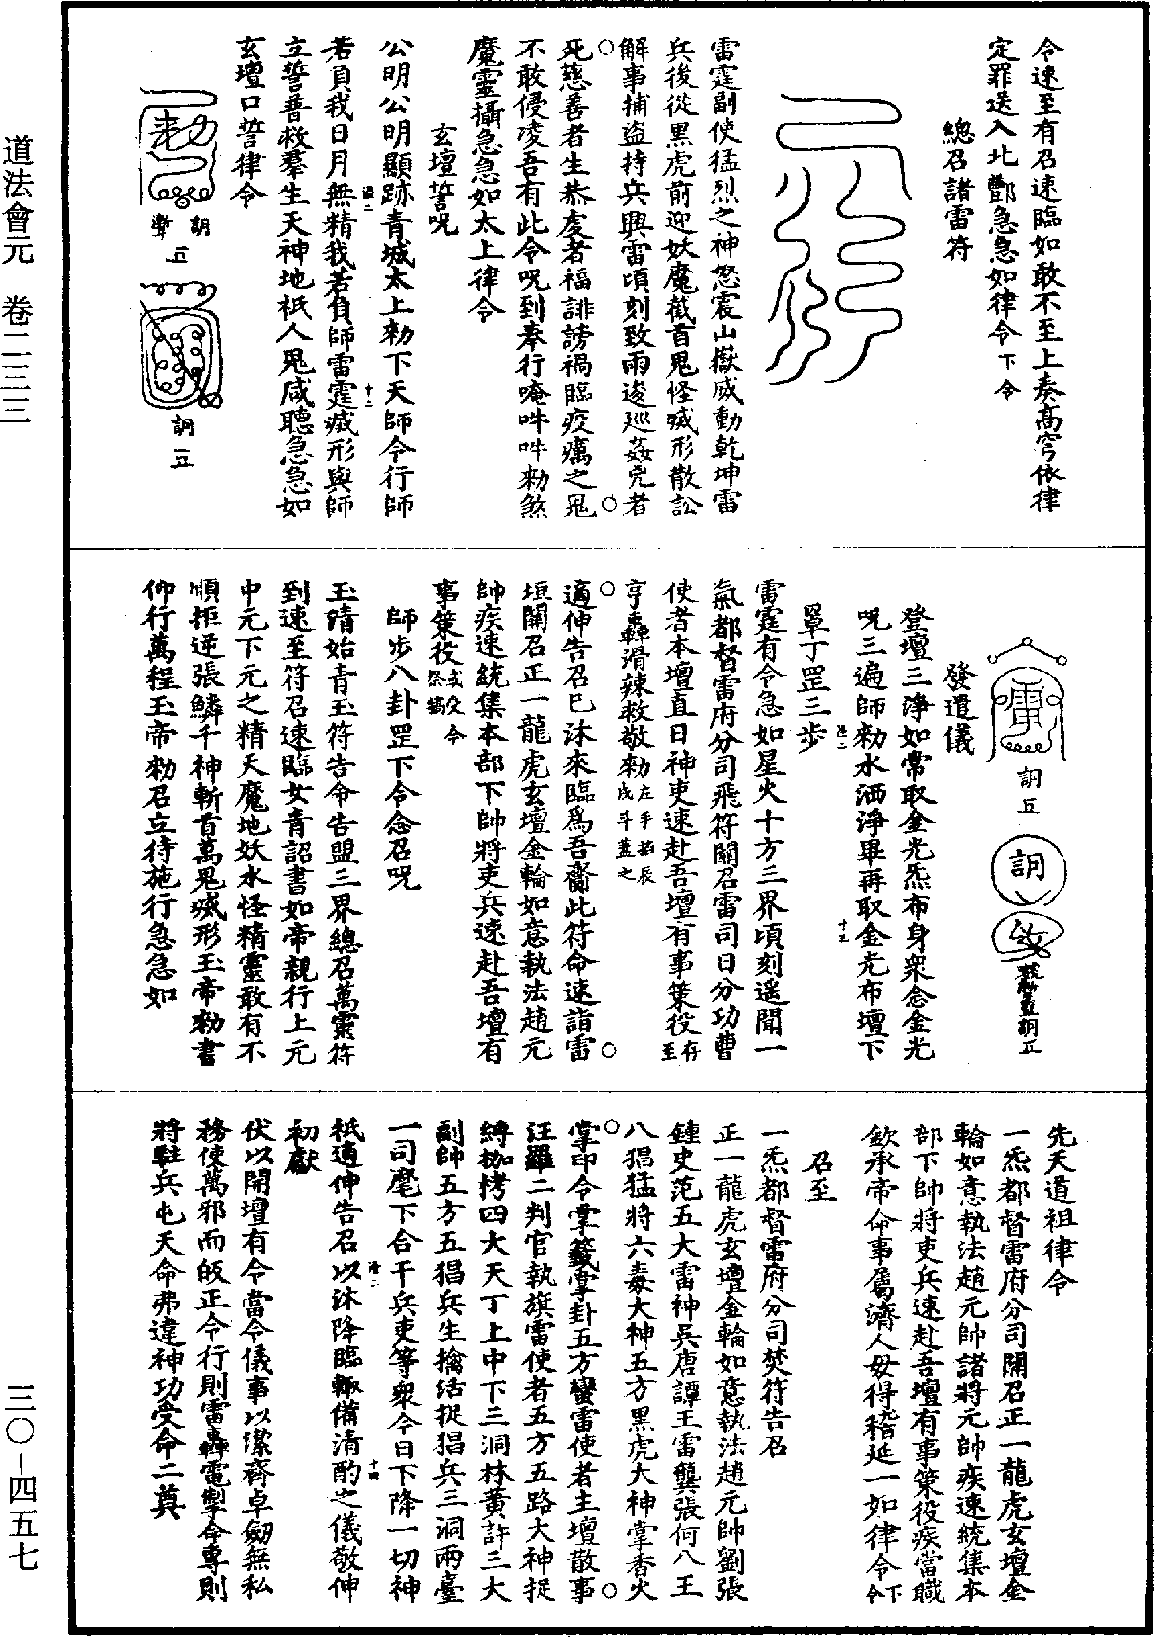 道法會元　卷二三三
三〇－四五七
令速至有召速臨如敢不至上奏高穹依律
定罪送入北酆急急如律令下令
總召諸雷符
雷霆副使猛烈之神怒震山嶽威動乾坤雷
兵後從黑虎前迎妖魔截首鬼怪滅形散訟
解事捕盜持兵興雷頃刻致雨逡巡姦兇者
死慈善者生恭虔者福誹謗禍臨疫癘之鬼
不敢侵凌吾有此令呪到奉行唵吽吽勑煞
魔靈攝急急如太上律令
玄壇誓呪
公明公明顯跡青城太上勑下天師令行師
若負我日月無精我若負師雷霆滅形與師
立誓普救羣生天神地祇人鬼咸聽急急如
玄壇口誓律令
勑
五
訶
五
雷
訶
五
訶
發遣儀
登壇三淨如常取金光炁布身衆念金光
呪三遍師勑水洒淨畢再取金光布壇下
罩丁罡三步
雷霆有令急如星火十方三界頃刻遥聞一
氣都督雷府分司飛符關召雷司日分功曹
使者本壇直日神吏速赴吾壇有事策役存至
亨轟滑辣救敬勑左手掐辰戌斗蓋之
適伸告召已沐來臨爲吾齎此符命速詣雷
垣關召正一龍虎玄壇金輪如意執法趙元
帥疾速統集本部下帥將吏兵速赴吾壇有
事策役
師步八卦罡下令念召呪
玉清始青玉符告命告盟三界總召萬靈符
到速至符召速臨女青詔書如帝親行上元
中元下元之精天魔地妖水怪精靈敢有不
順拒逆張鱗千神斬首萬鬼滅形玉帝勑書
仰行萬程玉帝勑召立待施行急急如
先天道祖律令
一炁都督雷府分司關召正一龍虎玄壇金
輪如意執法趙元帥諸將元帥疾速統集本
部下帥將吏兵速赴吾壇有事策役疾當職
欽承帝命事屬濟人毋得稽延一如律令下令
召至
一炁都督雷府分司焚符告召
正一龍虎玄壇金輪如意執法趙元帥劉張
鍾史范五大雷神吳唐譚王雷龔張何八王
八猖猛將六毒大神五方黑虎大神掌香火
掌印令掌籤掌卦五方蠻雷使者主壇散事
汪羅二判官執旗雷使者五方五路大神捉
縛枷拷四大天丁上中下三洞林黃許三大
副帥五方五猖兵生擒活捉猖兵三洞兩臺
一司麾下合干兵吏等衆今日下降一切神
祇適伸告召以沐降臨輙備清酌之儀敬伸
初獻
伏以開壇有令當令儀事以潔齊卓劒無私
務使萬邪而皈正令行則雷轟電掣命專則
將駐兵屯天命弗違神功受命二奠